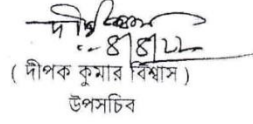 দীপক
৪|৪|২২
( দীপক কুমার বিশ্বাস )
উপসচিব